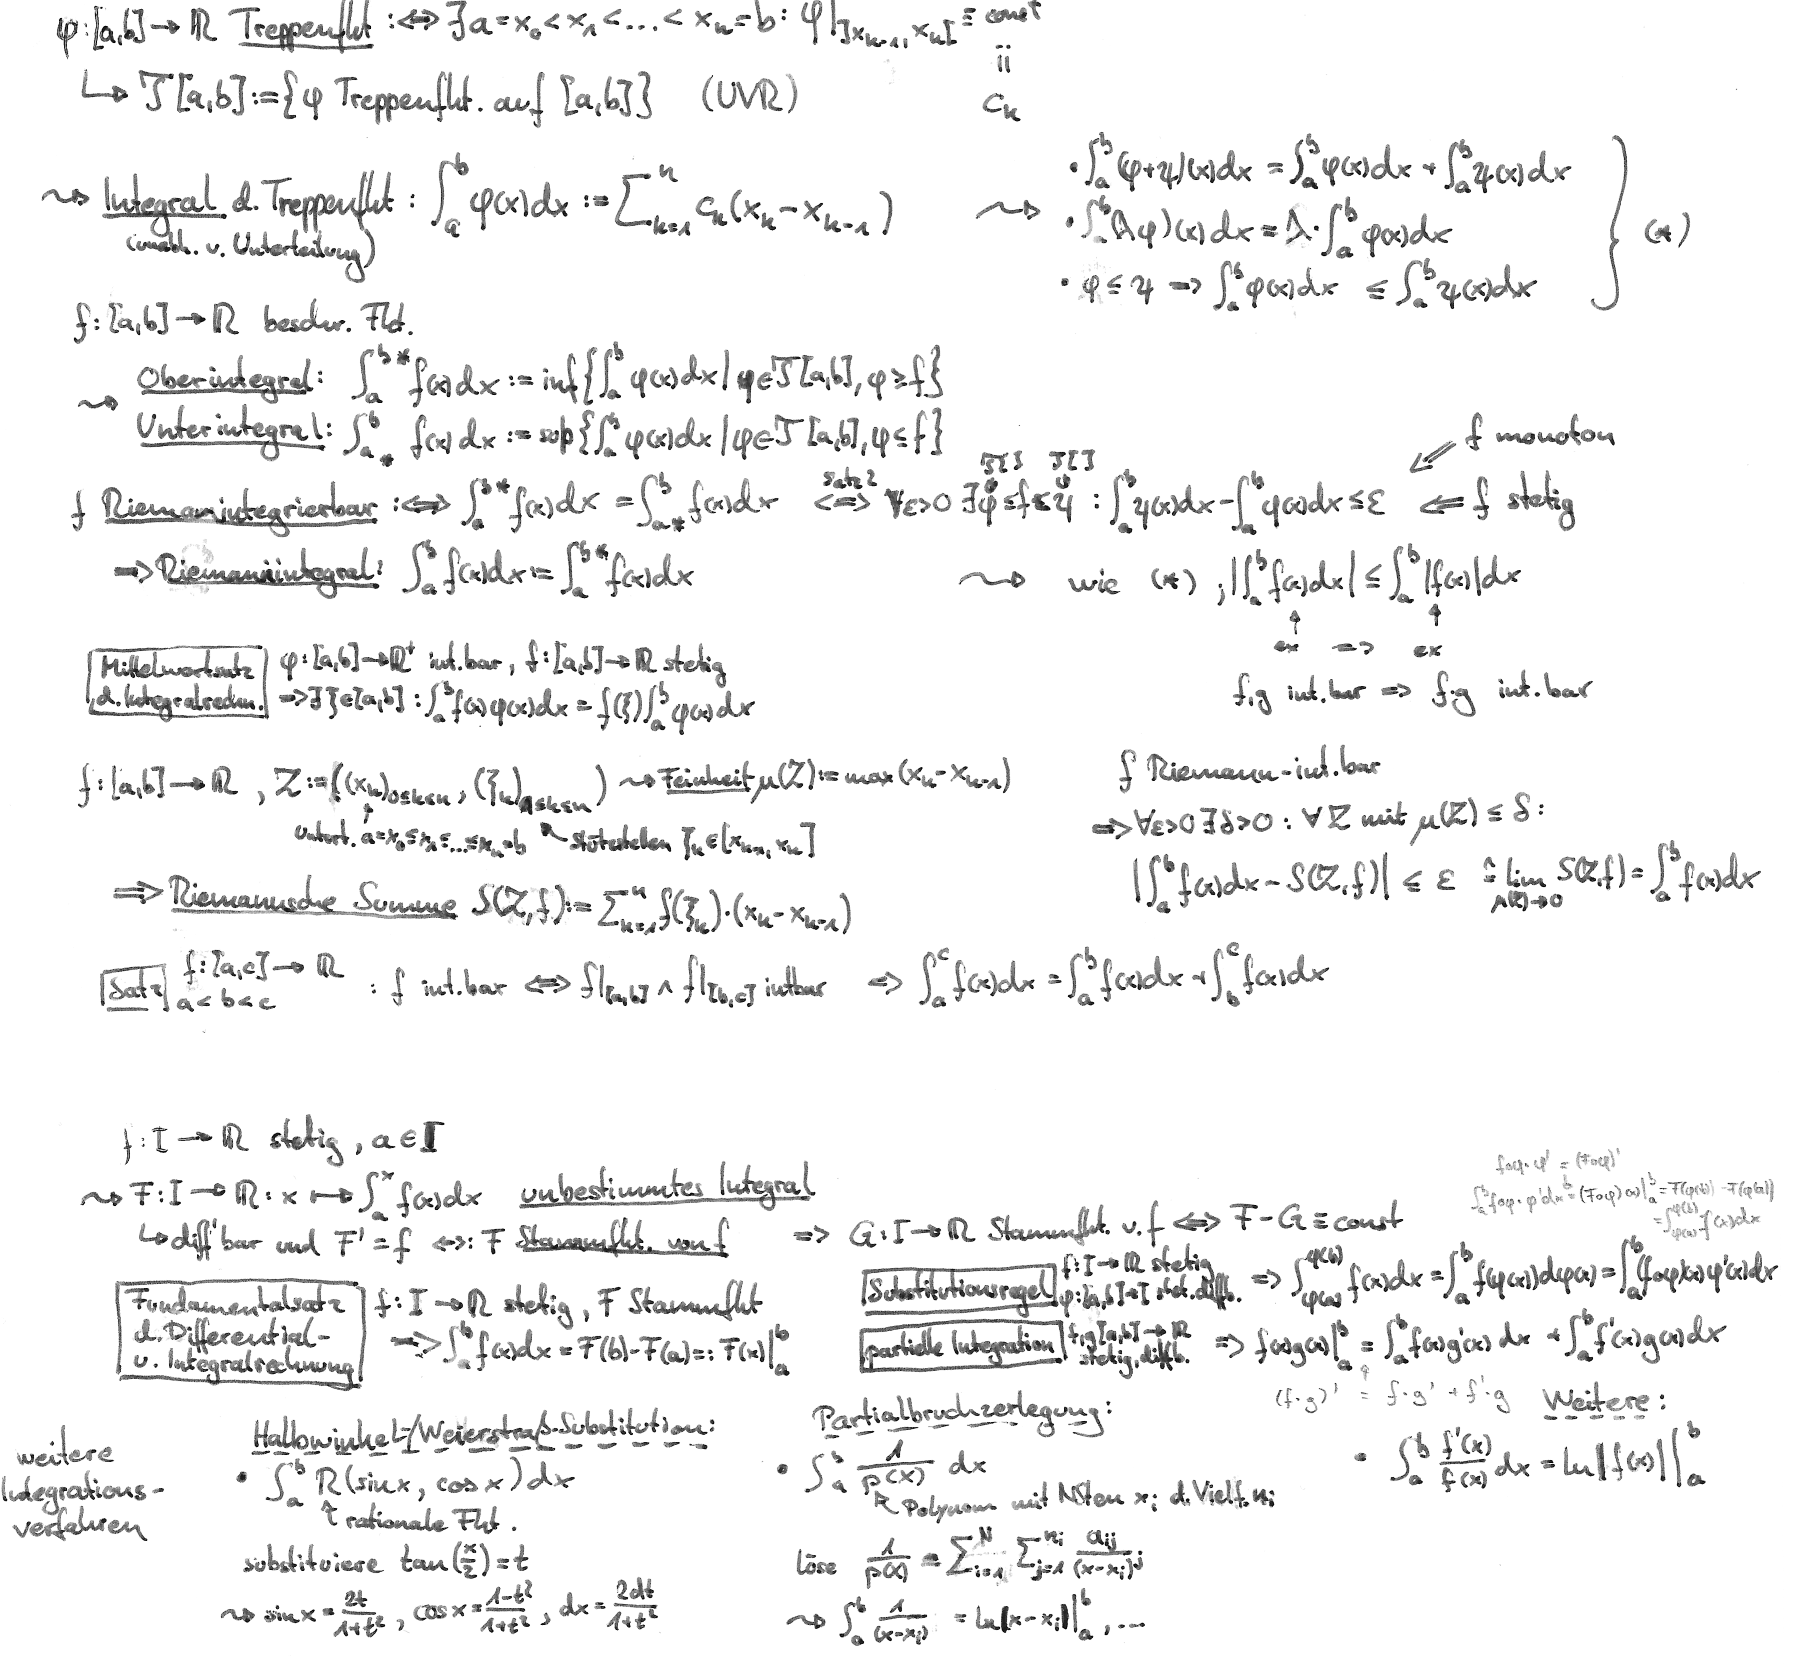 φ:[a,b]→ℝ Treppenfkt :⇔ ∃ a=x₀<x₁<...<xₙ=b: φ|]xₖ₋₁,xₖ[ ≡ const
ii
cₖ
↳ 𝒯[a,b]:={φ Treppenfkt. auf [a,b]} (UVR)
⇝ Integral d. Treppenfkt : ∫ₐᵇ φ(x)dx := ∑ₖ₌₁ⁿ cₖ(xₖ-xₖ₋₁)
(unabh. v. Unterteilung)
⇝ • ∫ₐᵇ(φ+ψ)(x)dx = ∫ₐᵇφ(x)dx + ∫ₐᵇψ(x)dx
• ∫ₐᵇ(λφ)(x)dx = λ·∫ₐᵇφ(x)dx
• φ≤ψ ⇒ ∫ₐᵇφ(x)dx ≤ ∫ₐᵇψ(x)dx
} (*)
f:[a,b]→ℝ beschr. Fkt.
⇝ Oberintegral: ∫ₐᵇ* f(x)dx := inf{∫ₐᵇ φ(x)dx | φ∈𝒯[a,b], φ≥f}
Unterintegral: ∫ₐ*ᵇ f(x)dx := sup{∫ₐᵇ φ(x)dx | φ∈𝒯[a,b], φ≤f}
f Riemannintegrierbar :⇔ ∫ₐᵇ* f(x)dx = ∫ₐ*ᵇ f(x)dx ⇔ (Satz) ∀ε>0 ∃φ≤f≤ψ : ∫ₐᵇψ(x)dx - ∫ₐᵇφ(x)dx ≤ ε ⇐ f stetig
𝒯[] 𝒯[]
⇙ f monoton
⇒ Riemannintegral: ∫ₐᵇ f(x)dx := ∫ₐᵇ* f(x)dx
⇝ wie (*) ; |∫ₐᵇ f(x)dx| ≤ ∫ₐᵇ |f(x)|dx
↑ ↑
ex ⇒ ex
f,g int.bar ⇒ f·g int.bar
Mittelwertsatz d. Integralrechn.
φ:[a,b]→ℝ⁺ int.bar, f:[a,b]→ℝ stetig
⇒ ∃ξ∈[a,b] : ∫ₐᵇ f(x)φ(x)dx = f(ξ)∫ₐᵇ φ(x)dx
f:[a,b]→ℝ , Z:=((xₖ)₀≤ₖ≤ₙ, (ξₖ)₁≤ₖ≤ₙ) ⇝ Feinheit μ(Z):=max(xₖ-xₖ₋₁)
Untert. a=x₀≤x₁≤...≤xₙ=b ↖ Stützstellen ξₖ∈[xₖ₋₁,xₖ]
⇒ Riemannsche Summe S(Z,f):= ∑ₖ₌₁ⁿ f(ξₖ)·(xₖ-xₖ₋₁)
f Riemann-int.bar
⇒ ∀ε>0 ∃δ>0 : ∀Z mit μ(Z) ≤ δ :
|∫ₐᵇ f(x)dx - S(Z,f)| ≤ ε ≙ lim_{μ(Z)→0} S(Z,f) = ∫ₐᵇ f(x)dx
Satz f:[a,c]→ℝ
a<b<c : f int.bar ⇔ f|[a,b] ∧ f|[b,c] intbar ⇒ ∫ₐᶜ f(x)dx = ∫ₐᵇ f(x)dx + ∫_bᶜ f(x)dx
f:I→ℝ stetig, a∈I
⇝ F:I→ℝ: x ↦ ∫ₐˣ f(x)dx unbestimmtes Integral
↳ diff'bar und F'=f ⇔: F Stammfkt. von f ⇒ G:I→ℝ Stammfkt. v. f ⇔ F-G≡const
f∘φ·φ' = (F∘φ)'
∫ₐᵇ f∘φ·φ'dx = (F∘φ)(x)|ₐᵇ = F(φ(b))-F(φ(a))
= ∫_{φ(a)}^{φ(b)} f(x)dx
Fundamentalsatz
d. Differential-
u. Integralrechnung
f:I→ℝ stetig, F Stammfkt
⇒ ∫ₐᵇ f(x)dx = F(b)-F(a) =: F(x)|ₐᵇ
Substitutionsregel f:I→ℝ stetig φ:[a,b]→I stet. diffb. ⇒ ∫_{φ(a)}^{φ(b)} f(x)dx = ∫ₐᵇ f(φ(x))dφ(x) = ∫ₐᵇ(f∘φ)(x)φ'(x)dx
partielle Integration f,g:[a,b]→ℝ stetig. diffb. ⇒ f(x)g(x)|ₐᵇ = ∫ₐᵇ f(x)g'(x)dx + ∫ₐᵇ f'(x)g(x)dx
(f·g)' = f·g' + f'·g
weitere
Integrations-
verfahren
Halbwinkel-/Weierstraß-Substitution:
• ∫ₐᵇ R(sinx, cosx)dx
↑ rationale Fkt.
substituiere tan(x/2)=t
⇝ sinx = 2t/(1+t²), cosx = (1-t²)/(1+t²), dx = 2dt/(1+t²)
Partialbruchzerlegung:
• ∫ₐᵇ 1/p(x) dx
↖ Polynom mit NSten xᵢ d. Vielf. nᵢ
löse 1/p(x) = ∑ᵢ₌₁ᴺ ∑ⱼ₌₁ⁿⁱ aᵢⱼ/(x-xᵢ)ʲ
⇝ ∫ₐᵇ 1/(x-xᵢ) = ln|x-xᵢ||ₐᵇ, ...
Weitere:
• ∫ₐᵇ f'(x)/f(x) dx = ln|f(x)||ₐᵇ